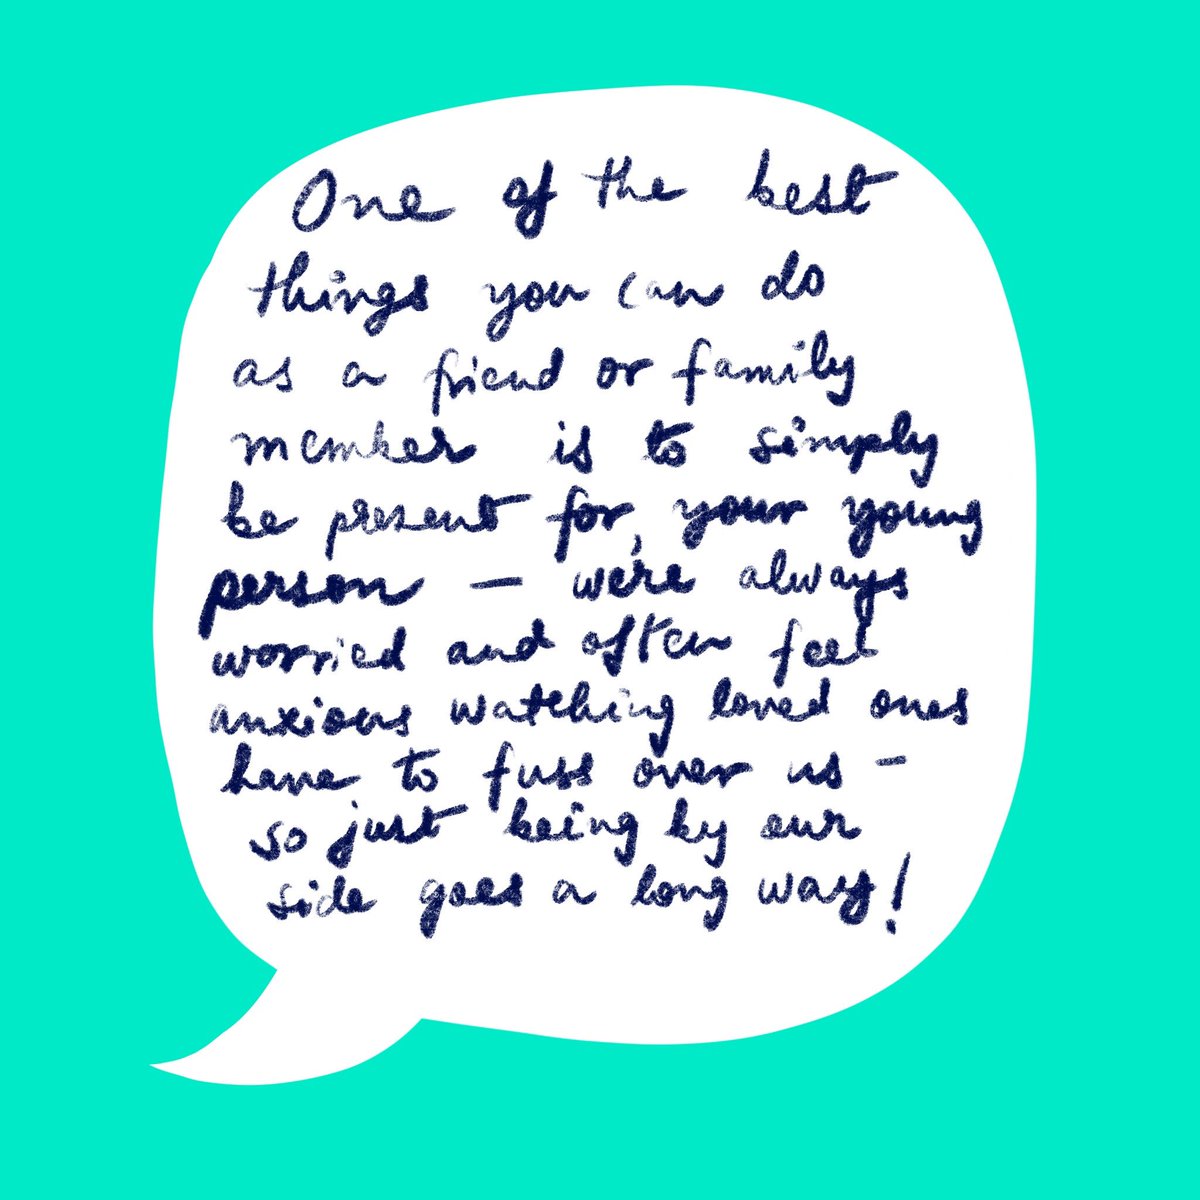 One of the best
things you can do
as a friend or family
member is to simply
be present for your young
person – we're always
worried and often feel
anxious watching loved ones
have to fuss over us –
so just being by our
side goes a long way!